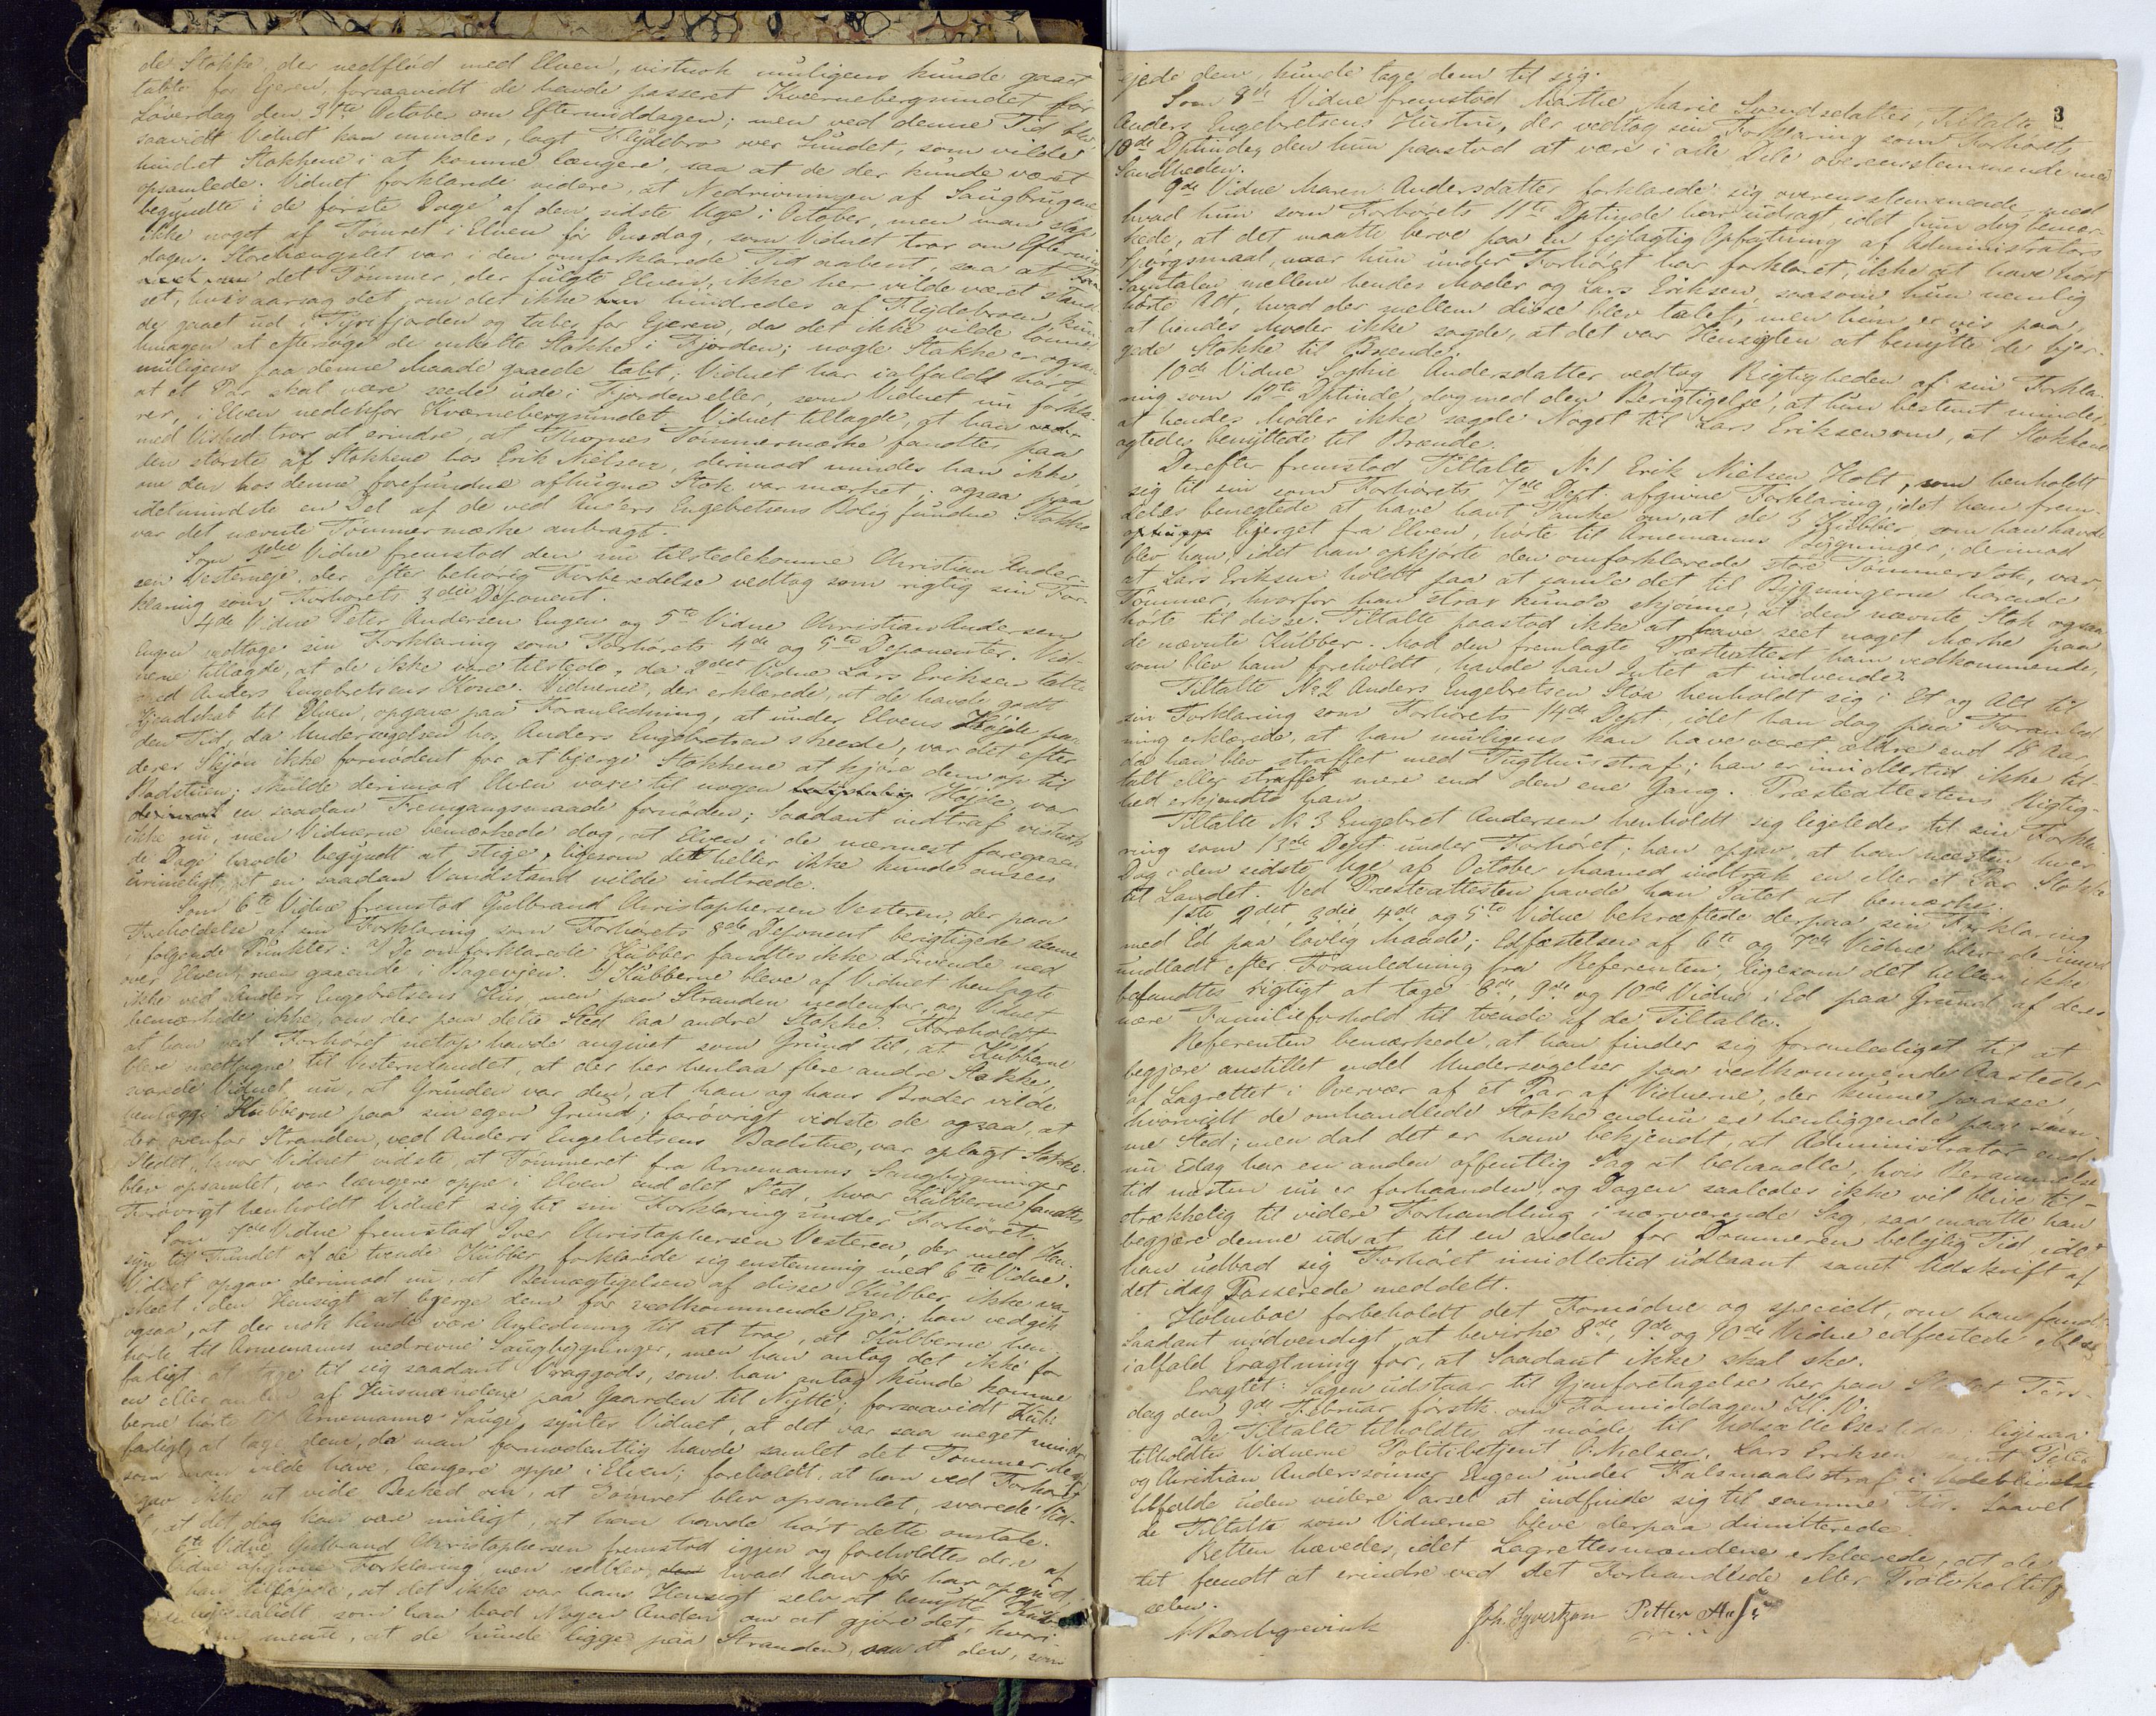 de Stokke, der nedflød med Elven, vistnok muligens kunde gaaet
tabte for Ejeren, forsaavidt de havde passeret Kværnebergsundet før
Løverdag den 31te October om Eftermiddagen; men ved denne Tid blev
saavidt Vidnet kan mindes, lagt Flydebro over Sundet, som vilde
hindret Stokkene i at komme længere, saa at de der kunde været
opsamlede. Vidnet forklarede videre, at Nedrivningen af Saugbrugene
begyndte i de første Dage af den sidste Uge i October, men man slap
ikke noget af Tømret i Elven før Onsdag, som Vidnet tror om Eftermid-
dagen. Storehængslet var i den omforklarede Tid aabent, saa at
det Tømmer, der fulgte Elven, ikke her vilde været stand-
set, hvisaarsag det, om det ikke hindredes af Flydebroen, kun-
de gaaet ud i Tyrifjorden og tabes for Ejeren, da det ikke vilde lønnet
Umagen at eftersøge de enkelte Stokke i Fjorden; nogle Stokke er ogsaa
muligens paa denne Maade gaaede tabt; Vidnet har ialfald hørt,
at et Par skal være seede ude i Fjorden eller, som Vidnet nu forkla-
rer, i Elven nedenfor Kværnebergsundet. Vidnet tillagde, at han
med Vished tror at erindre, at Thornes Tømmermærke fandtes paa
den største af Stokkene hos Erik Nielsen, derimod mindes han ikke,
om den hos denne forefundne afhugne Stok var mærket; ogsaa paa
idetmindste en Del af de ved Anders Engebretsens Bolig fundne Stokke
var det nævnte Tømmermærke anbragt.
Som 3die Vidne fremstod den nu tilstedekomne Christian Ander-
sen Vesterneje, der efter behørig Forberedelse vedtog som rigtig sin For-
klaring som Forhørets 3die Deponent.
4de Vidne Peter Andersen Engen og 5te Vidne Christian Andersen
Engen vedtoge sin Forklaring som Forhørets 4de og 5te Deponenter. Vid-
nerne tillagde, at de ikke vare tilstede, da 2det Vidne Lars Eriksen talte
med Anders Engebretsens Kone. Vidnerne, der erklærede, at de havde godt
Kjendskab til Elven, opgave paa Foranledning, at under Elvens Høide paa
den Tid, da Undersøgelsen hos Anders Engebretsen skeede, var det efter
deres Skjøn ikke fornødent for at bjerge Stokkene at kjøre dem op til
Badstuen; skulde derimod Elven være til nogen Højde, var
en saadan Fremgangsmaade fornøden; Saadant indtraf vistnok
ikke nu, men Vidnerne bemærkede dog, at Elven i de nærmest foregaaen-
de Dage havde begyndt at stige, ligesom det heller ikke kunde ansees
urimeligt, at en saadan Vandstand vilde indtræde.
Som 6te Vidne fremstod Gulbrand Christophersen Vesteren, der paa
Foreholdelse af sin Forklaring som Forhørets 8de Deponent berigtigede denne
i følgende Punkter: a) De omforklarede Kubber fandtes ikke drivende ned
over Elven, men gaaende i Bagevjen. b) Kubberne bleve af Vidnet henlagte
ikke ved Anders Engebretsens Hus, men paa Stranden nedenfor, og Vidnet
bemærkede ikke, om der paa dette Sted laa andre Stokke. Foreholdt
at han ved Forhøret netop havde angivet som Grund til, at Kubberne
bleve medtagne til Vesternlandet, at der her henlaa flere andre Stokke,
svarede Vidnet nu, at Grunden var den, at han og hans Broder vilde
henlægge Kubberne paa sin egen Grund; forøvrigt vidste de ogsaa, at
der ovenfor Stranden, ved Anders Engebretsens Badstue, var oplagt Stokke.
Stedet, hvor Vidnet vidste, at Tømmeret fra Arnemanns Saugbygninger
blev opsamlet, var længere oppe i Elven end det Sted, hvor Kubberne fandtes
Forøvrigt henholdt Vidnet sig til sin Forklaring under Forhøret.
Som 7de Vidne fremstod Iver Christophersen Vesteren, der med Hen-
syn til Fundet af de tvende Kubber forklarede sig enstemmig med 6te Vidne.
Vidnet opgav derimod nu, at Bemægtigelsen af disse Kubber ikke va
skeet i den Hensigt at bjerge dem for vedkommende Ejer; han vedgik
ogsaa, at der nok kunde være Anledning til at tro, at Kubberne hen-
hørte til Arnemanns nedrevne Saugbygninger, men han antog det ikke for
farligt at tage til sig saadant Vraggods, som han antog kunde komme
en eller anden af Husmændene paa Gaarden til Nytte; forsaavidt Kub-
berne hørte til Arnemanns Sauge, syntes Vidnet, at det var saa meget mindre
farligt at tage dem, da man formodentlig havde samlet det Tømmer, de
som man vilde have, længere oppe i Elven; foreholdt, at han ved Forhøret
gav ikke at vide Besked om, at Tømret blev opsamlet, svarede Vid-
at det dog kan være muligt, at han havde hørt dette omtale.
6te Vidne Gulbrand Christophersen fremstod igjen og foreholdtes den af
Vidne afgivne Forklaring men vedblev, hvad han før har opgivet,
han tilføjede, at det ikke var hans Hensigt selv at benytte Kub-
ligesaalidt som han bad Nogen Anden om at gjøre det, hvori-
mente, at de kunde ligge paa Stranden, saa at den, som
3
ejede dem, kunde tage dem til sig.
Som 8de Vidne fremstod Mathea Marie Svendsdatter, Tiltalte
Anders Engebretsens Hustru, der vedtog sin Forklaring som Forhørets
10de Dptinde, den hun paastod at være i alle Dele overensstemmende med
Sandheden.
9de Vidne Maren Andersdatter forklarede sig overensstemmende med
hvad hun som Forhørets 11te Dptinde har udsagt, idet hun dog bemær-
kede, at det maatte bero paa en fejlagtig Opfatning af Administrators
Spørgsmaal, naar hun under Forhøret har forklaret, ikke at have hørt
Samtalen mellem hendes Moder og Lars Eriksen, saasom hun nemlig
hørte Alt, hvad der mellem disse blev talet, men hun er vis paa,
at hendes Moder ikke sagde, at det var Hensigten at benytte de bjer-
gede Stokke til Brænde.
10de Vidne Sophie Andersdatter vedtog Rigtigheden af sin Forkla-
ring som 12te Dptinde, dog med den Berigtigelse, at hun bestemt mindes,
at hendes Moder ikke sagde Noget til Lars Eriksen om, at Stokkene
agtedes benyttede til Brænde.
Derefter fremstod Tiltalte No 1 Erik Nielsen Holt, som henholdt
sig til sin som Forhørets 7de Dept. afgivne Forklaring, idet han frem-
deles benegtede at have havt Tanke om, at de 3 Kubber, som han havde
bjerget fra Elven, hørte til Arnemanns Bygninger; derimod
blev han, idet han opkjørte den omforklarede store Tømmerstok, var,
at Lars Eriksen holdt paa at samle det til Bygningerne hørende
Tømmer, hvorfor han strax kunde skjønne, at den nævnte Stok ogsaa
hørte til disse. Tiltalte paastod ikke at have seet noget Mærke paa
de nævnte Kubber. Mod den fremlagte Præsteattest ham vedkommende,
som blev ham foreholdt, havde han Intet at indvende.
Tiltalte No 2 Anders Engebretsen Stoa henholdt sig i Et og Alt til
sin Forklaring som Forhørets 14de Dept. idet han dog paa Foranled-
ning erklærede, at han muligens kan have været ældre end 18 Aar,
da han blev straffet med Tugthusstraf; han er imidlertid ikke til-
talt eller straffet mere end den ene Gang. Præsteattestens Rigtig-
hed erkjendte han.
Tiltalte No 3 Engebret Andersen henholdt sig ligeledes til sin Forkla-
ring som 13de Dept. under Forhøret; han opgav, at han næsten hver
Dag i den sidste Uge af October Maaned indtrak en eller et Par Stokke
til Landet. Ved Præsteattesten havde han Intet at bemærke.
1ste, 2det, 3die, 4de og 5te Vidne bekræftede derpaa sin Forklaring
med Ed paa lovlig Maade; Edfæstelsen af 6te og 7de Vidne blev derimod
undladt efter Foranledning fra Referenten, ligesom det heller ikke
befandtes rigtigt at tage 8de, 9de og 10de Vidne i Ed paa Grund af deres
nære Familieforhold til tvende af de Tiltalte.
Referenten bemærkede, at han finder sig foranlediget til at
begjære anstillet endel Undersøgelser paa vedkommende Aasteder
af Lagrettet i Overvær af et Par af Vidnerne, der kunne paasee,
hvorvidt de omhandlede Stokke endnu er henliggende paa sam-
me Sted; men da det er ham bekjendt, at Administrator end-
nu Idag har en anden offentlig Sag at behandle, hvis Berammelse
tid næsten nu er forhaanden, og Dagen saaledes ikke vil blive til-
strækkelig til videre Forhandling i nærværende Sag, saa maatte han
begjære denne udsat til en anden for Dommeren belejlig Tid, idet
han udbad sig Forhøret imidlertid udlaant samt Udskrift af
det idag Passerede meddelt.
Holmboe forbeholdt det Fornødne og specielt, om han fandt
Saadant nødvendigt, at bevirke 8de, 9de og 10de Vidne edfæstede eller
ialfald Eragtning for, at Saadant ikke skal ske.
Eragtet: Sagen udstaar til Gjenforetagelse her paa Stedet Tirs-
dag den 9de Februar førstk. om Formiddagen Kl. 10.
De Tiltalte tilholdtes at møde til Udsættelsestiden; ligesaa
tilholdtes Vidnerne Politibetjent P. Nielsen, Lars Eriksen samt Peter
og Christian Anderssønner Engen under Falsmaalsstraf i Udeblivelses
tilfælde uden videre Varsel at indfinde sig til samme Tid. Saavel
de Tiltalte som Vidnerne bleve derpaa dimitterede.
Retten hævedes, idet Lagrettesmændene erklærede, at de
tet fandt at erindre ved det Forhandlede eller Protokoltilf
selen.
Borchgrevink Joh. Syvertzen Petter